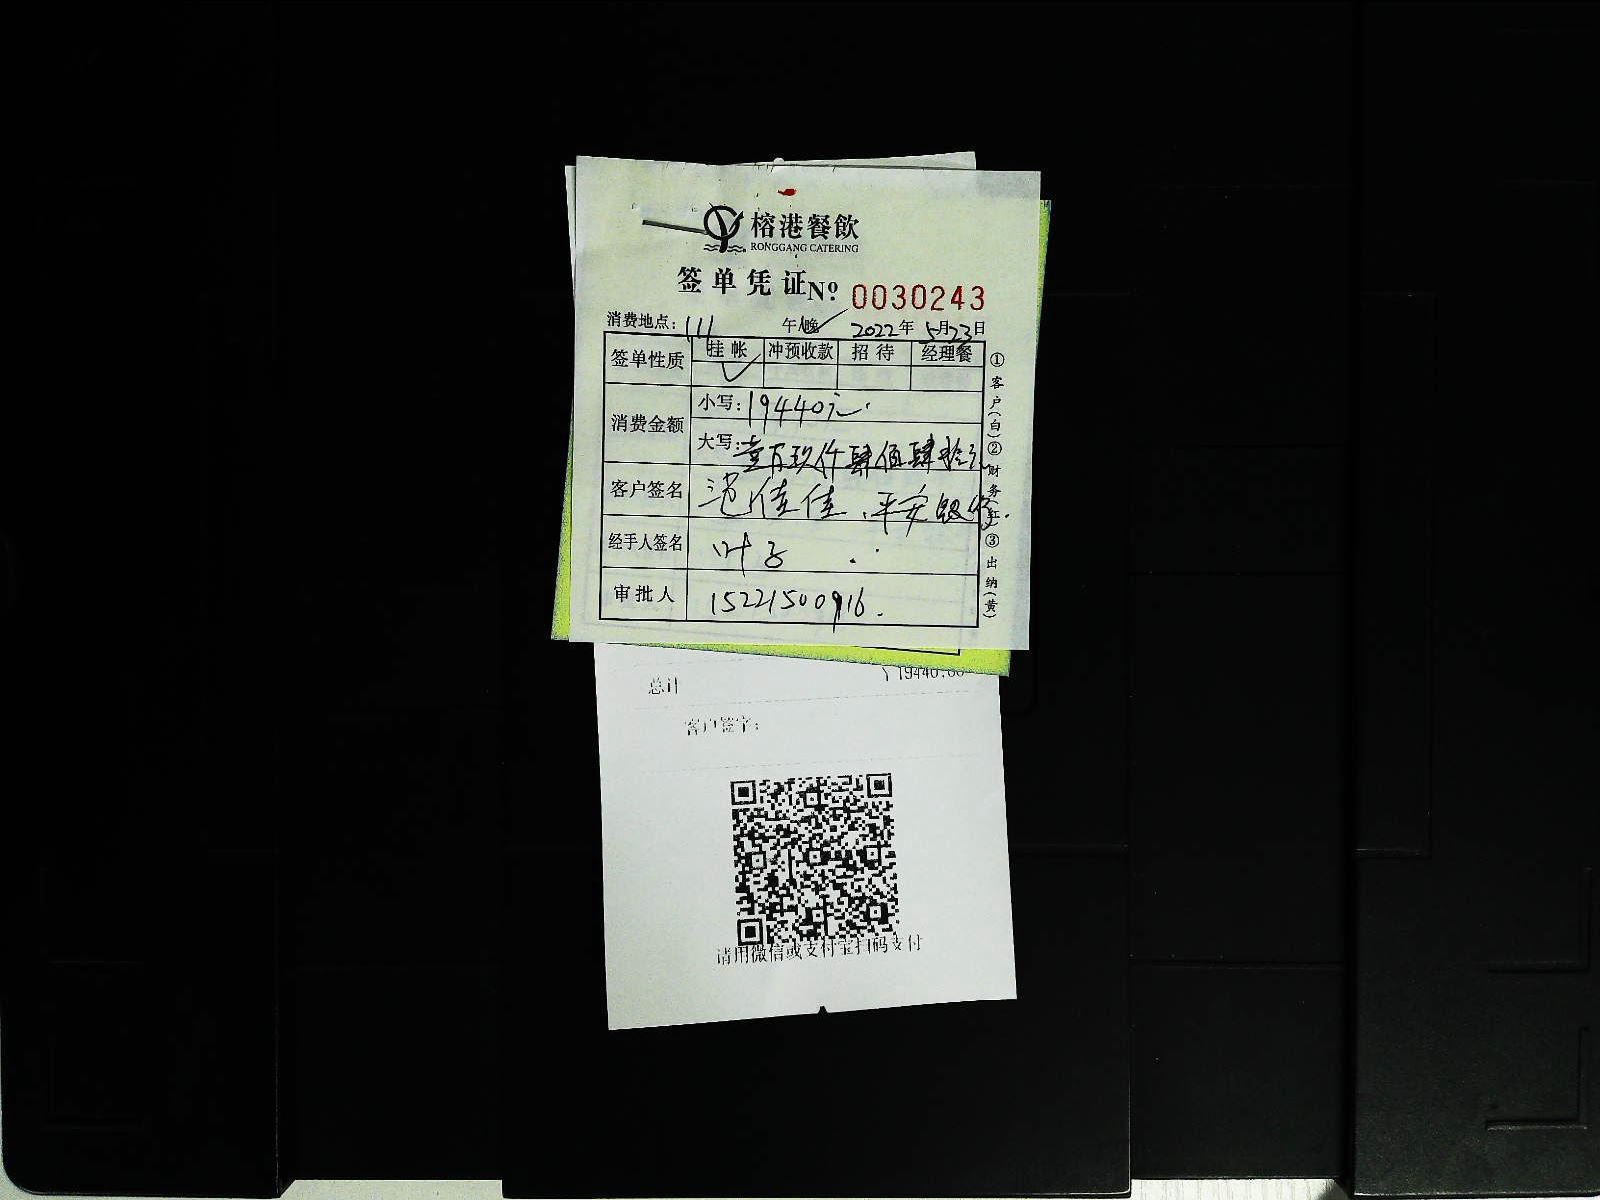 榕港餐飲
RONGGANG CATERING
签单凭证 Nº 0030243
消费地点: 111 午/晚 2022年5月23日
签单性质 挂帐 冲预收款 招待 经理餐
消费金额 小写: 19440元
大写: 壹万玖仟肆佰肆拾元
客户签名 范佳佳、平安银行.
经手人签名 叶子
审批人 15221500916.
①客户(白)②财务(红)③出纳(黄)
总计 ¥19440.00
客户签字:
请用微信或支付宝扫码支付